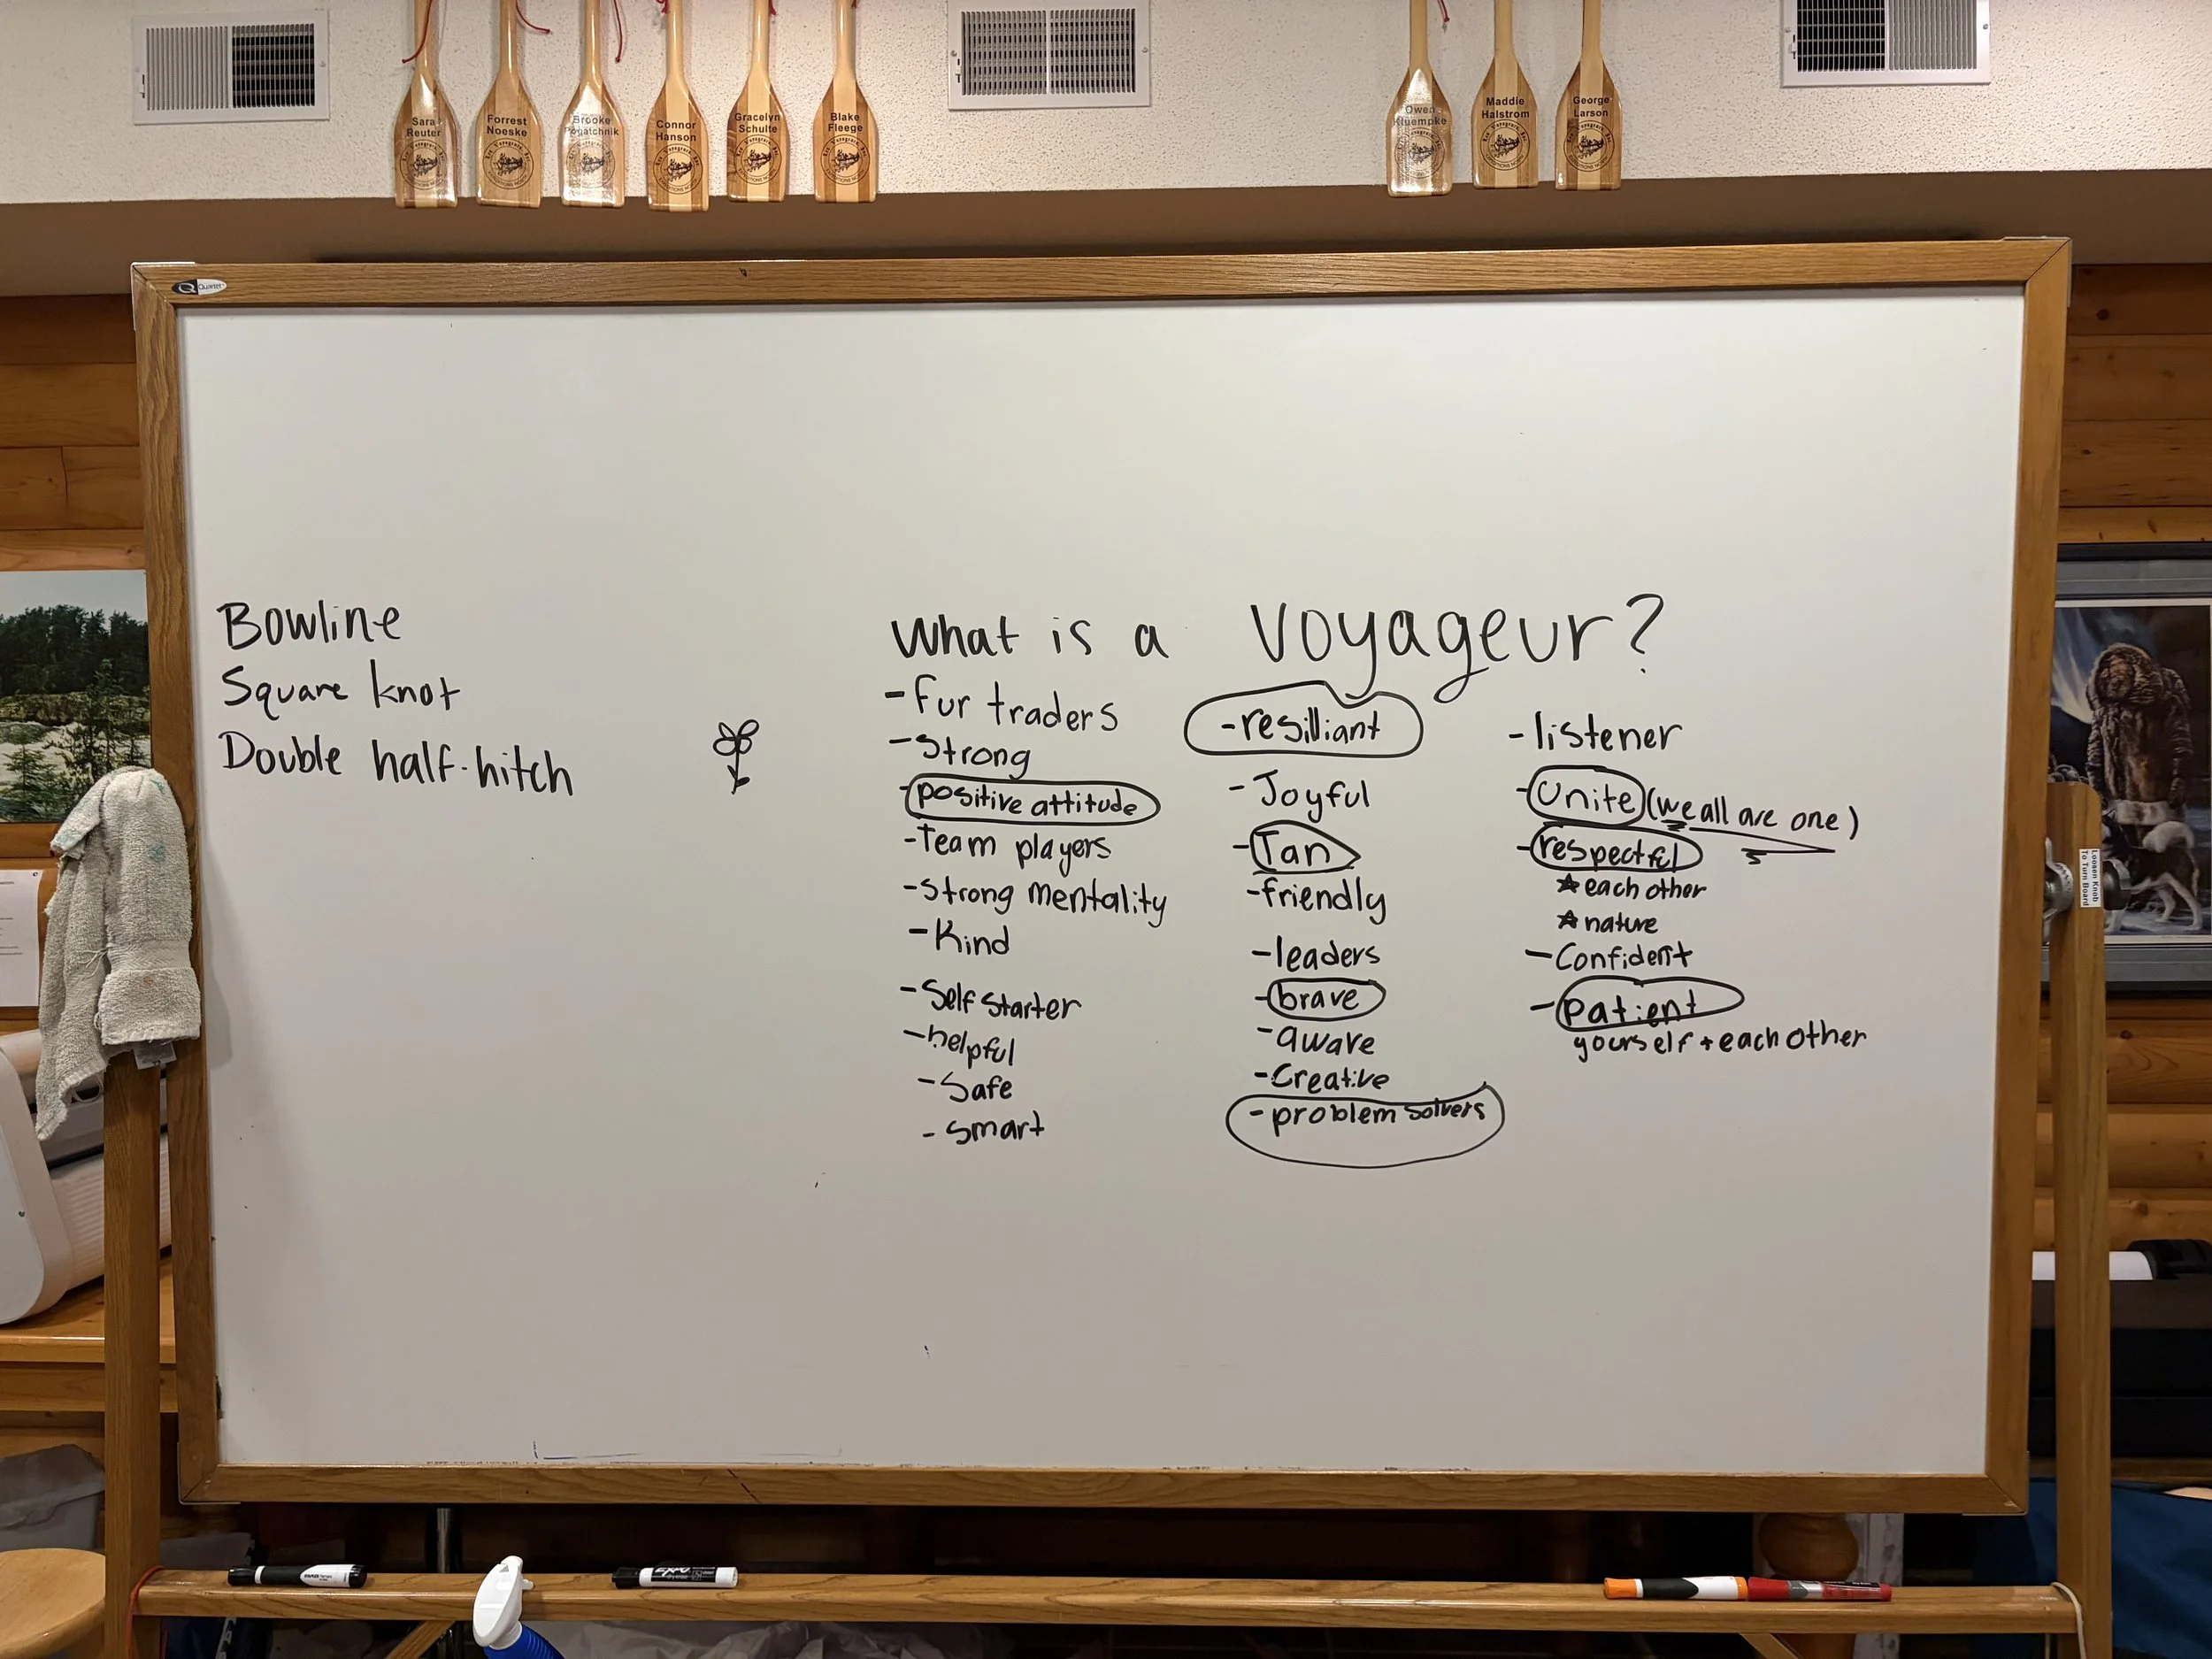 Sara
Reuter
Forrest
Noeske
Brooke
Pogatchnik
Connor
Hanson
Gracelyn
Schulte
Blake
Fleege
Owen
Kluempke
Maddie
Halstrom
George
Larson
Quartet
Bowline
Square knot
Double half-hitch
What is a Voyageur?
- Fur traders
- Strong
- positive attitude
- Team players
- Strong mentality
- Kind
- Self starter
- helpful
- Safe
- smart
- resilliant
- Joyful
- Tan
- friendly
- leaders
- brave
- aware
- Creative
- problem solvers
- listener
- Unite (we all are one)
- respectful
★ each other
★ nature
- Confident
- patient
yourself + each other
Loosen Knob
To Turn Board
EXPO